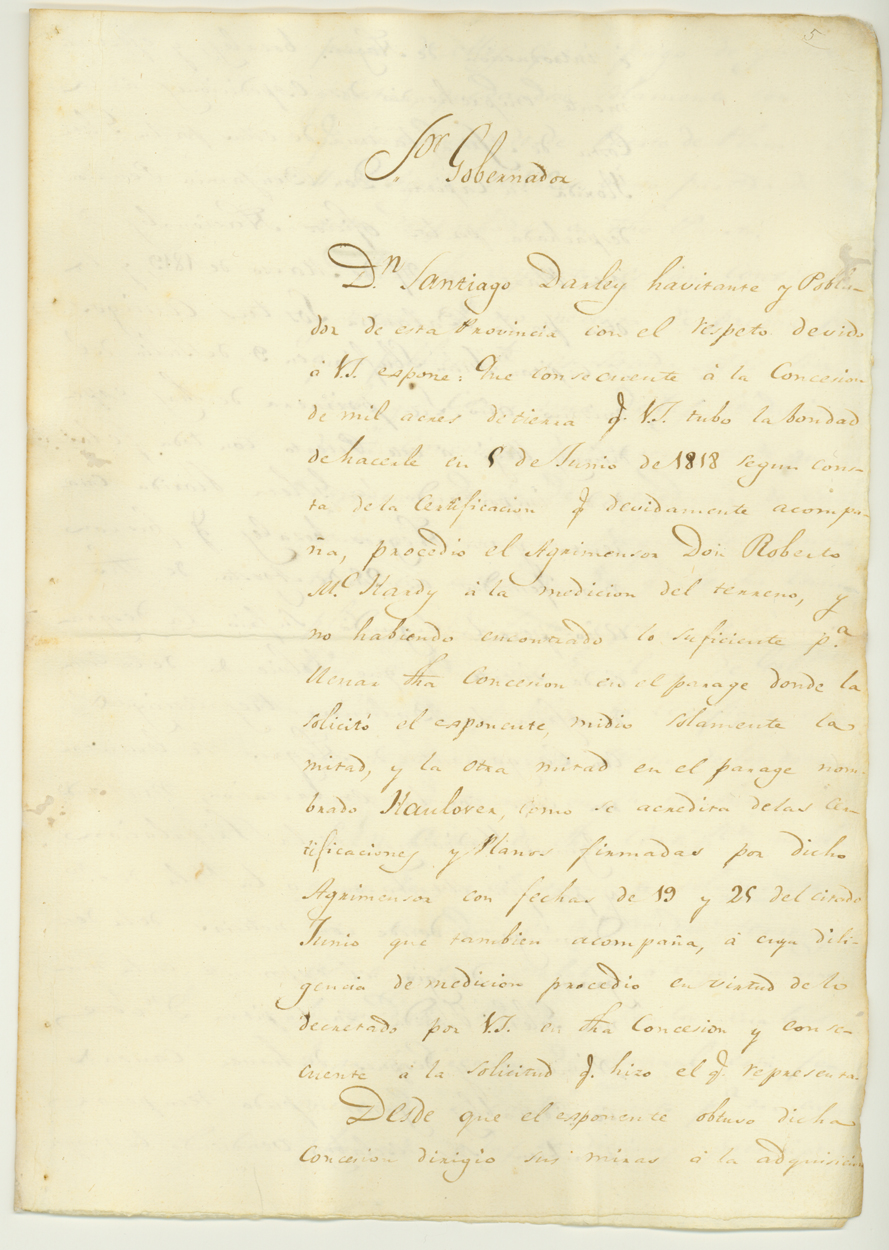 5
Sor Gobernador
Dn. Santiago Darley havitante y Pobla-
dor de esta Provincia con el respeto devido
á V.S. espone: Que consecuente á la Concesion
de mil acres de tierra q. V.S. tubo la bondad
de hacerle en 5 de Junio de 1818 segun cons-
ta de la Certificacion q devidamente acompa-
ña, procedio el Agrimensor Don Roberto
Mc. Hardy á la medicion del terreno, y
no habiendo encontrado lo suficiente pa.
llenar dha Concesion en el parage donde la
solicitó el esponente, midio solamente la
mitad, y la otra mitad en el parage nom-
brado Haulover, como se acredita de las Cer-
tificaciones y Planos firmadas por dicho
Agrimensor con fechas de 19 y 25 del citado
Junio que tambien acompaña, á cuya dili-
gencia de medicion procedio en virtud de lo
decretado por V.S. en dha Concesion y conse-
cuente á la solicitud q. hizo el q. representa.
Desde que el esponente obtuvo dicha
Concesion dirigio sus miras á la adquisicion